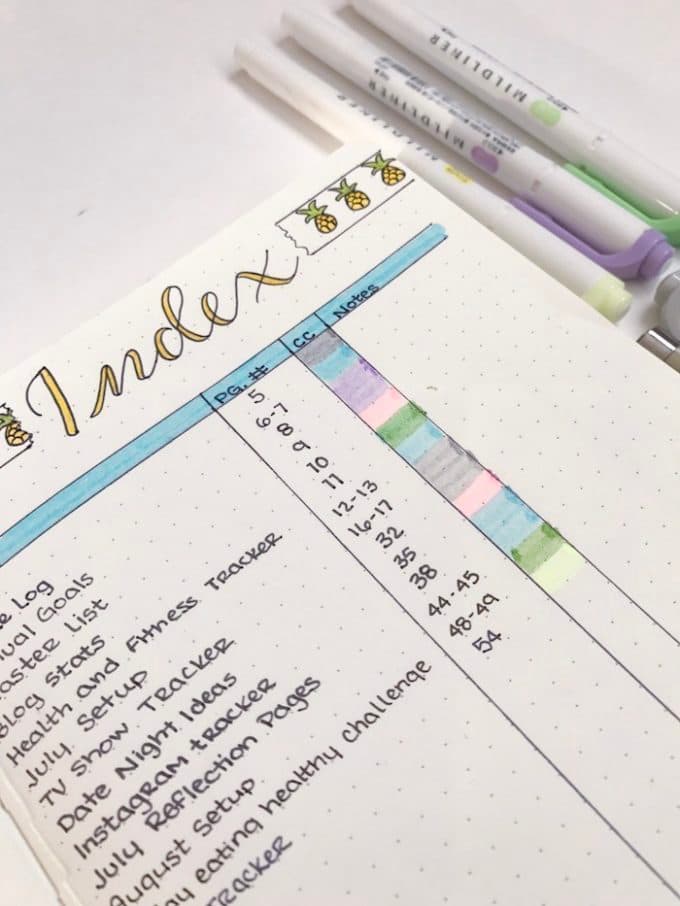 MILDLINER
MILDLINER
Index
PG. # CC Notes
Log
Goals
List
Blog Stats
Health and Fitness Tracker
July Setup
TV Show Tracker
Date Night Ideas
Instagram tracker
July Reflection Pages
August Setup
eating healthy challenge
Tracker
5
6-7
8
9
10
11
12-13
16-17
32
35
38
44-45
48-49
54